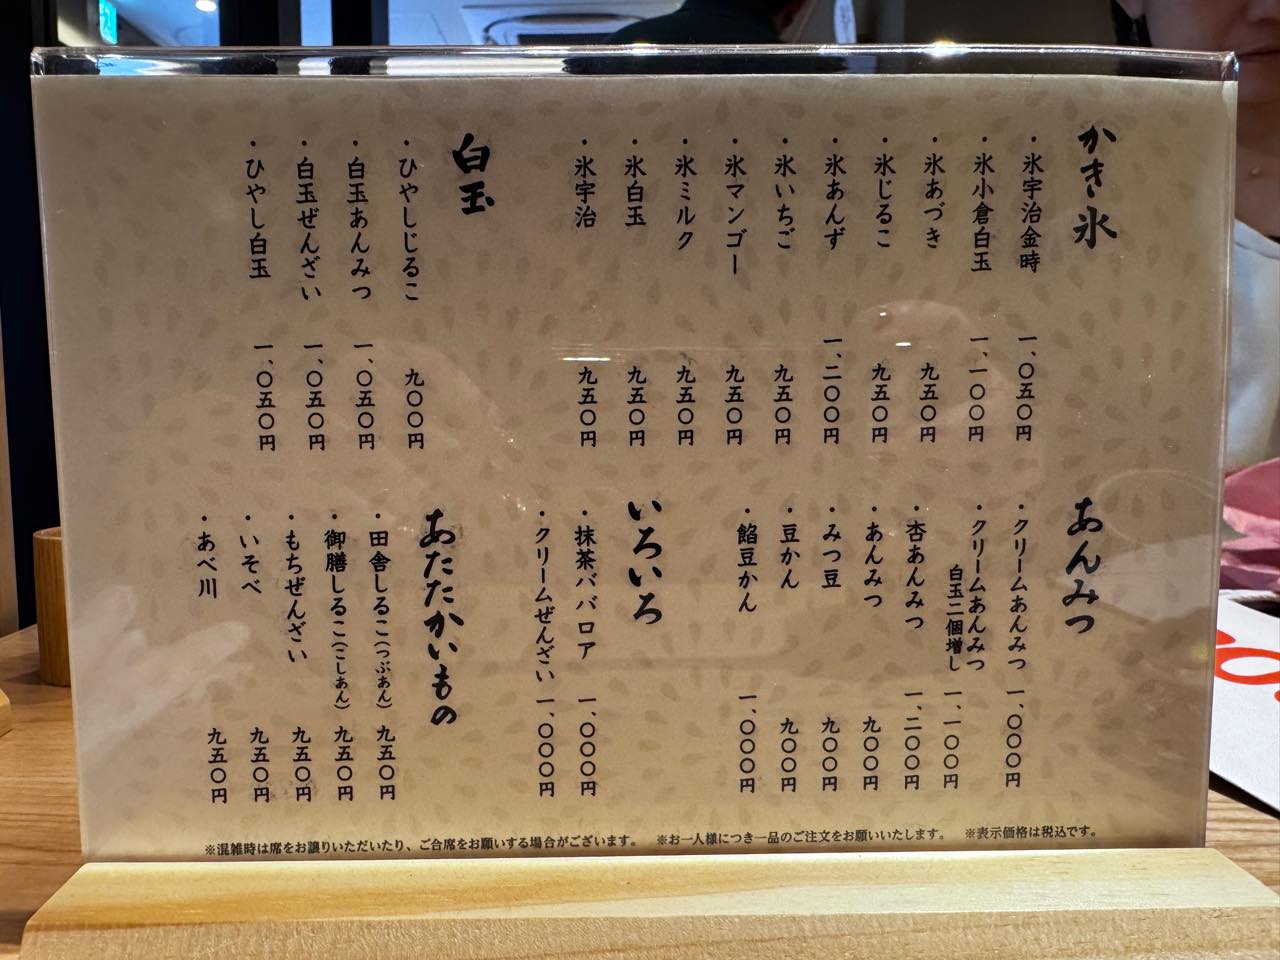 かき氷
・氷宇治金時 一、〇五〇円
・氷小倉白玉 一、一〇〇円
・氷あづき 九五〇円
・氷じるこ 九五〇円
・氷あんず 一、二〇〇円
・氷いちご 九五〇円
・氷マンゴー 九五〇円
・氷ミルク 九五〇円
・氷白玉 九五〇円
・氷宇治 九五〇円
白玉
・ひやしじるこ 九〇〇円
・白玉あんみつ 一、〇五〇円
・白玉ぜんざい 一、〇五〇円
・ひやし白玉 一、〇五〇円
あんみつ
・クリームあんみつ 一、〇〇〇円
・クリームあんみつ
白玉二個増し 一、一〇〇円
・杏あんみつ 一、二〇〇円
・あんみつ 九〇〇円
・みつ豆 九〇〇円
・豆かん 九〇〇円
・餡豆かん 一、〇〇〇円
いろいろ
・抹茶ババロア 一、〇〇〇円
・クリームぜんざい 一、〇〇〇円
あたたかいもの
・田舎しるこ(つぶあん) 九五〇円
・御膳しるこ(こしあん) 九五〇円
・もちぜんざい 九五〇円
・いそべ 九五〇円
・あべ川 九五〇円
※混雑時は席をお譲りいただいたり、ご合席をお願いする場合がございます。 ※お一人様につき一品のご注文をお願いいたします。 ※表示価格は税込です。